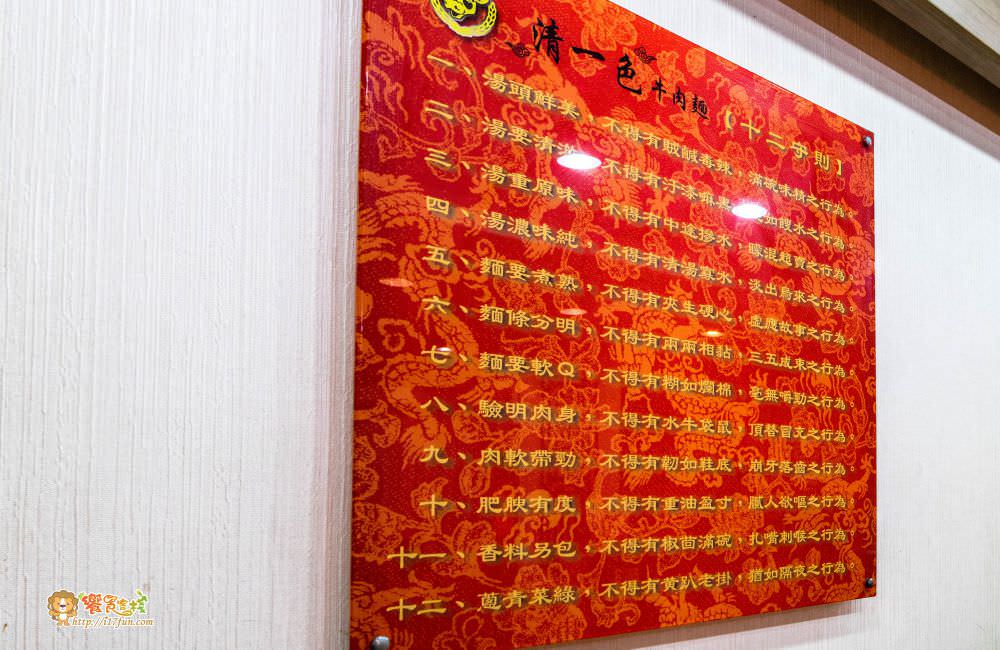 清一色牛肉麵【十二守則】
一、湯頭鮮美，不得有賊鹹毒辣，滿碗味精之行為。
二、湯要清澈，不得有汙漆嘛黑，如餿水之行為。
三、湯重原味，不得有中途摻水，矇混超賣之行為。
四、湯濃味純，不得有清湯寡水，淡出鳥來之行為。
五、麵要煮熟，不得有夾生硬心，虛應故事之行為。
六、麵條分明，不得有兩兩相黏，三五成束之行為。
七、麵要軟Q，不得有糊如爛棉，毫無嚼勁之行為。
八、驗明肉身，不得有水牛袋鼠，頂替冒充之行為。
九、肉軟帶勁，不得有韌如鞋底，崩牙落齒之行為。
十、肥腴有度，不得有重油盈寸，膩人欲嘔之行為。
十一、香料另包，不得有椒茴滿碗，扎嘴刺喉之行為。
十二、蔥青菜綠，不得有黃趴老掛，猶如隔夜之行為。
http://i17fun.com